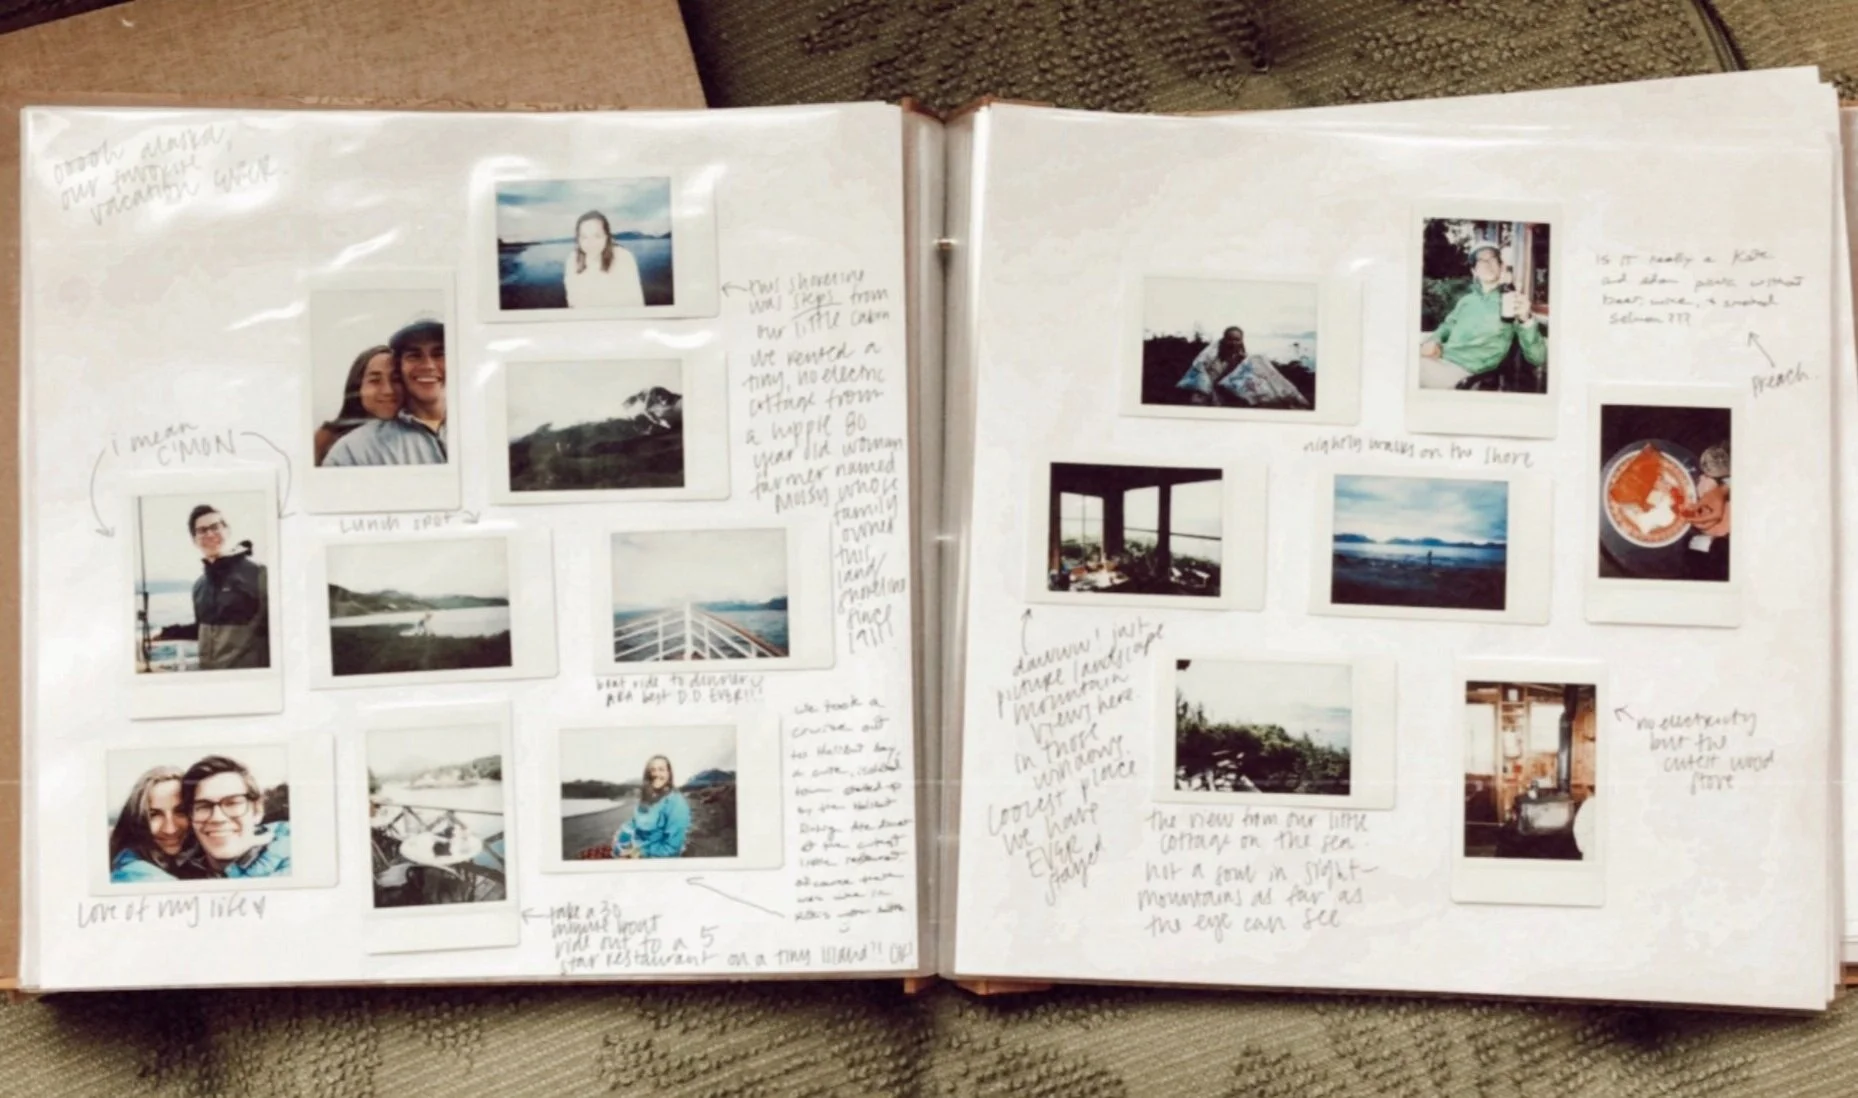 ooooh alaska,
our favorite
vacation EVER.
this shoreline
was steps from
our little cabin
we rented a
tiny, no electric
cottage from
a hippie 80
year old woman
farmer named
Mossy whose
family
owned
this
land/
shoreline
since
1911
i mean
C'MON
LUNCH SPOT
boat ride to dinner
AKA best D.D EVER!!!
we took a
cruise out
to Halibut bay,
a cute, isolated
town
by the Halibut
of the cutest
little restaurant
love of my life
take a 30
minute boat
ride out to a 5
star restaurant on a tiny island!! OK!
is it really a Kate
and adam without
beer, wine, + smoked
salmon???
Preach.
nightly walks on the shore
dawww! just
picture landscape
mountain
views here.
in those
windows.
coolest place
we have
EVER
stayed
the view from our little
cottage on the sea.
not a soul in sight-
mountains as far as
the eye can see
no electricity
but the
cutest wood
stove